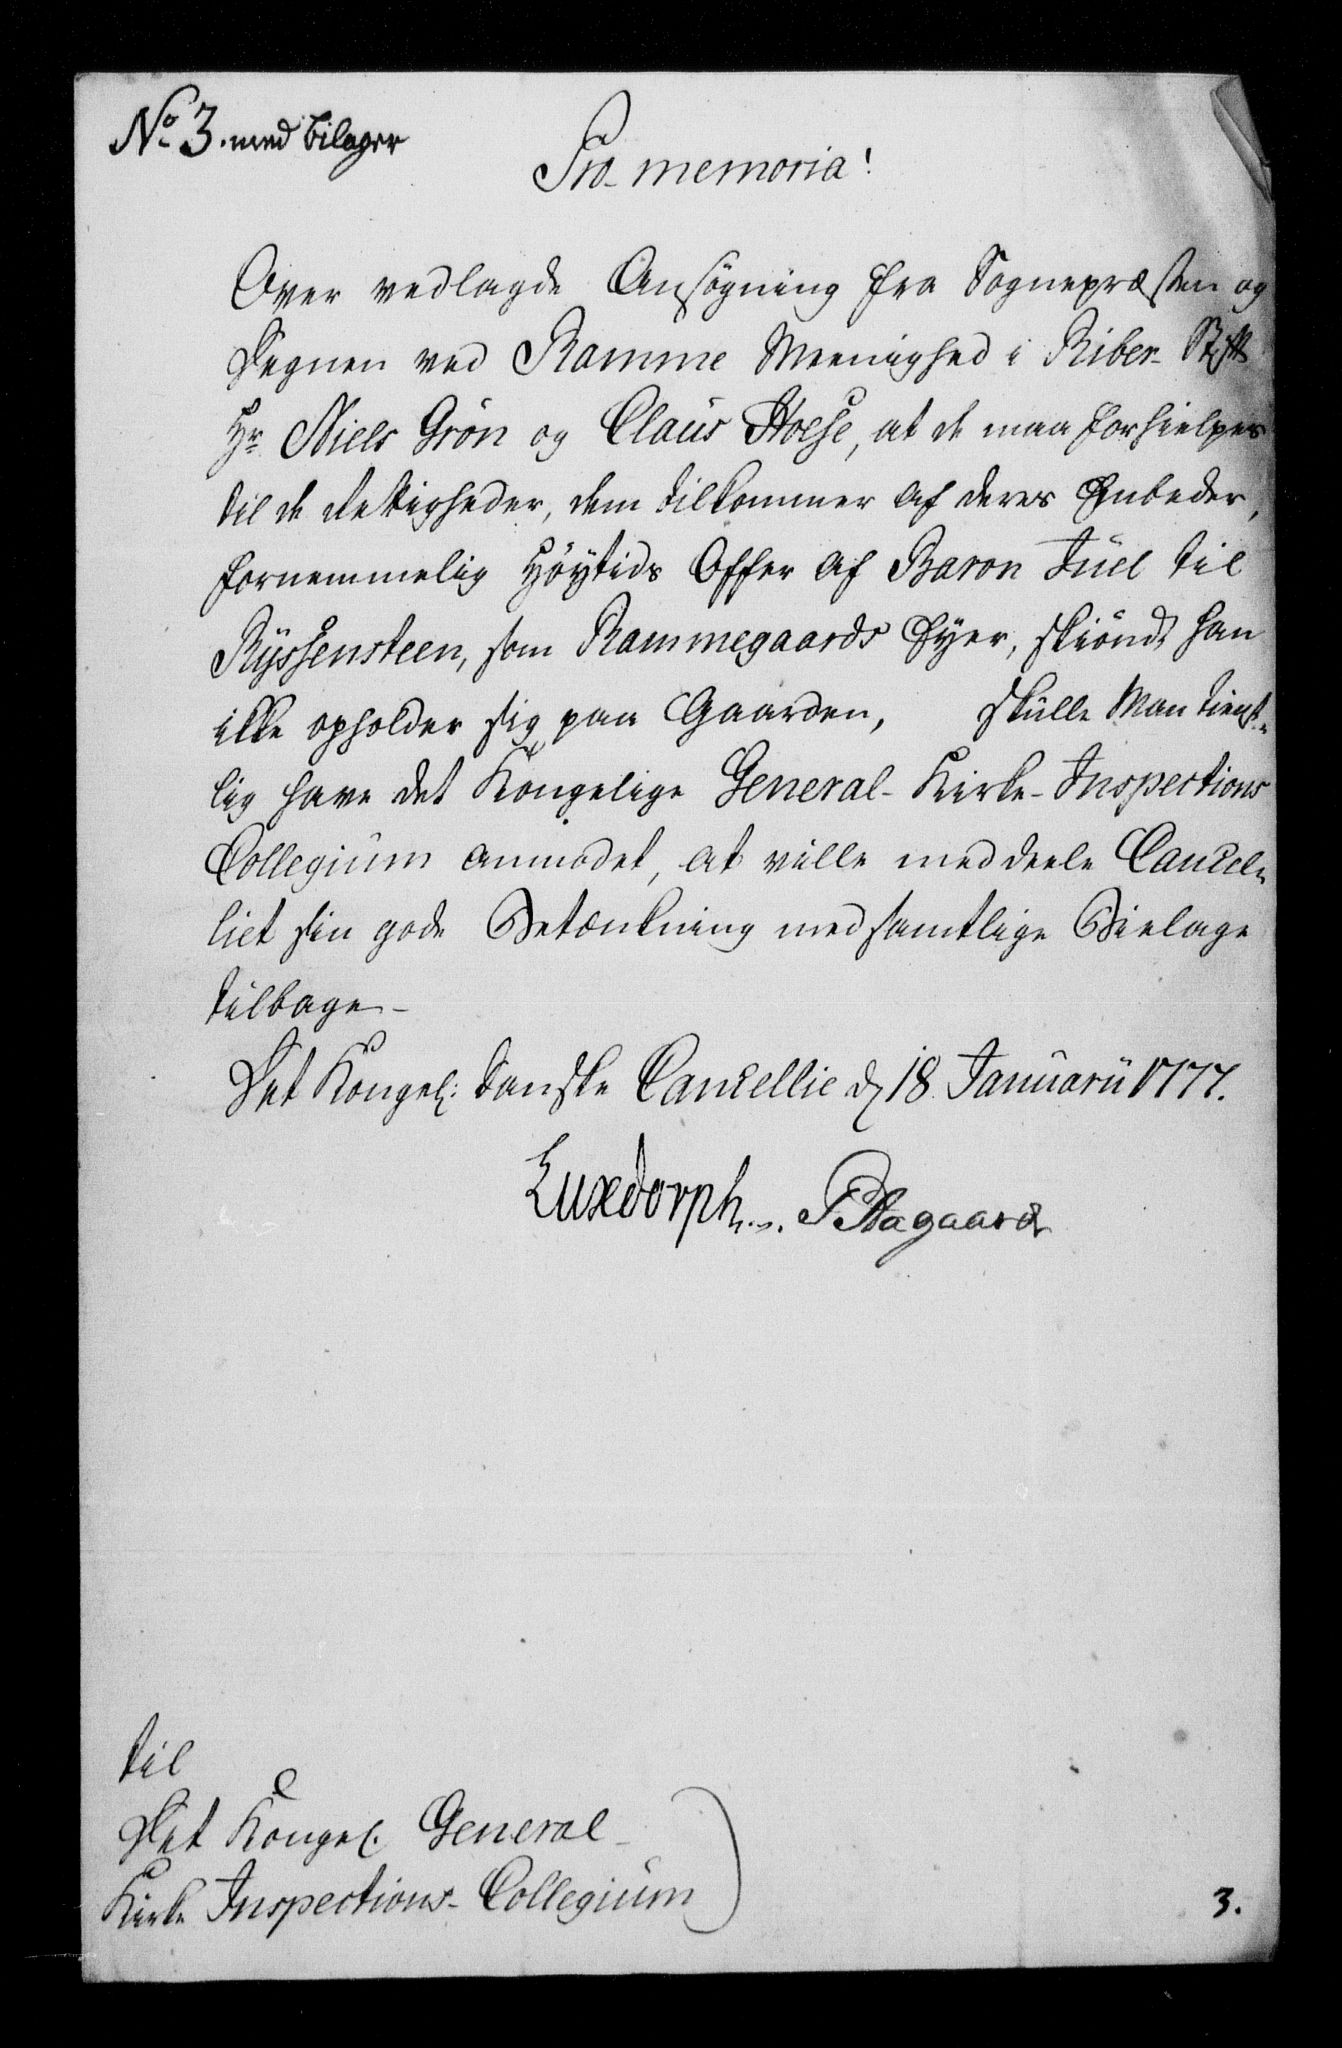 No 3. med bilager
Pro memoria!
Over vedlagde Ansøgning fra Sognepræsten og
Degnen ved Ramme Meenighed i Riber-Stift
Hr Niels Grön og Claus Hoese, at de maa forhielpes
til de Rettigheder, dem tilkommer af deres Enbeder,
fornemmelig Höytids Offer af Baron Juel til
Ryssensteen, som Rammegaards Eyer, skiöndt han
ikke opholder sig paa Gaarden, skulle Man tienst-
lig have det Kongelige General-Kirke-Inspections
Collegium anmodet, at ville meddeele Cancel-
liet sin gode Betænkning med samtlige Bielage
tilbage-
Det Kongel: Danske Cancellie d 18 Januarii 1777.
Luxdorph. P Aagaard
til
Det Kongel. General-
Kirke Inspections-Collegium
3.